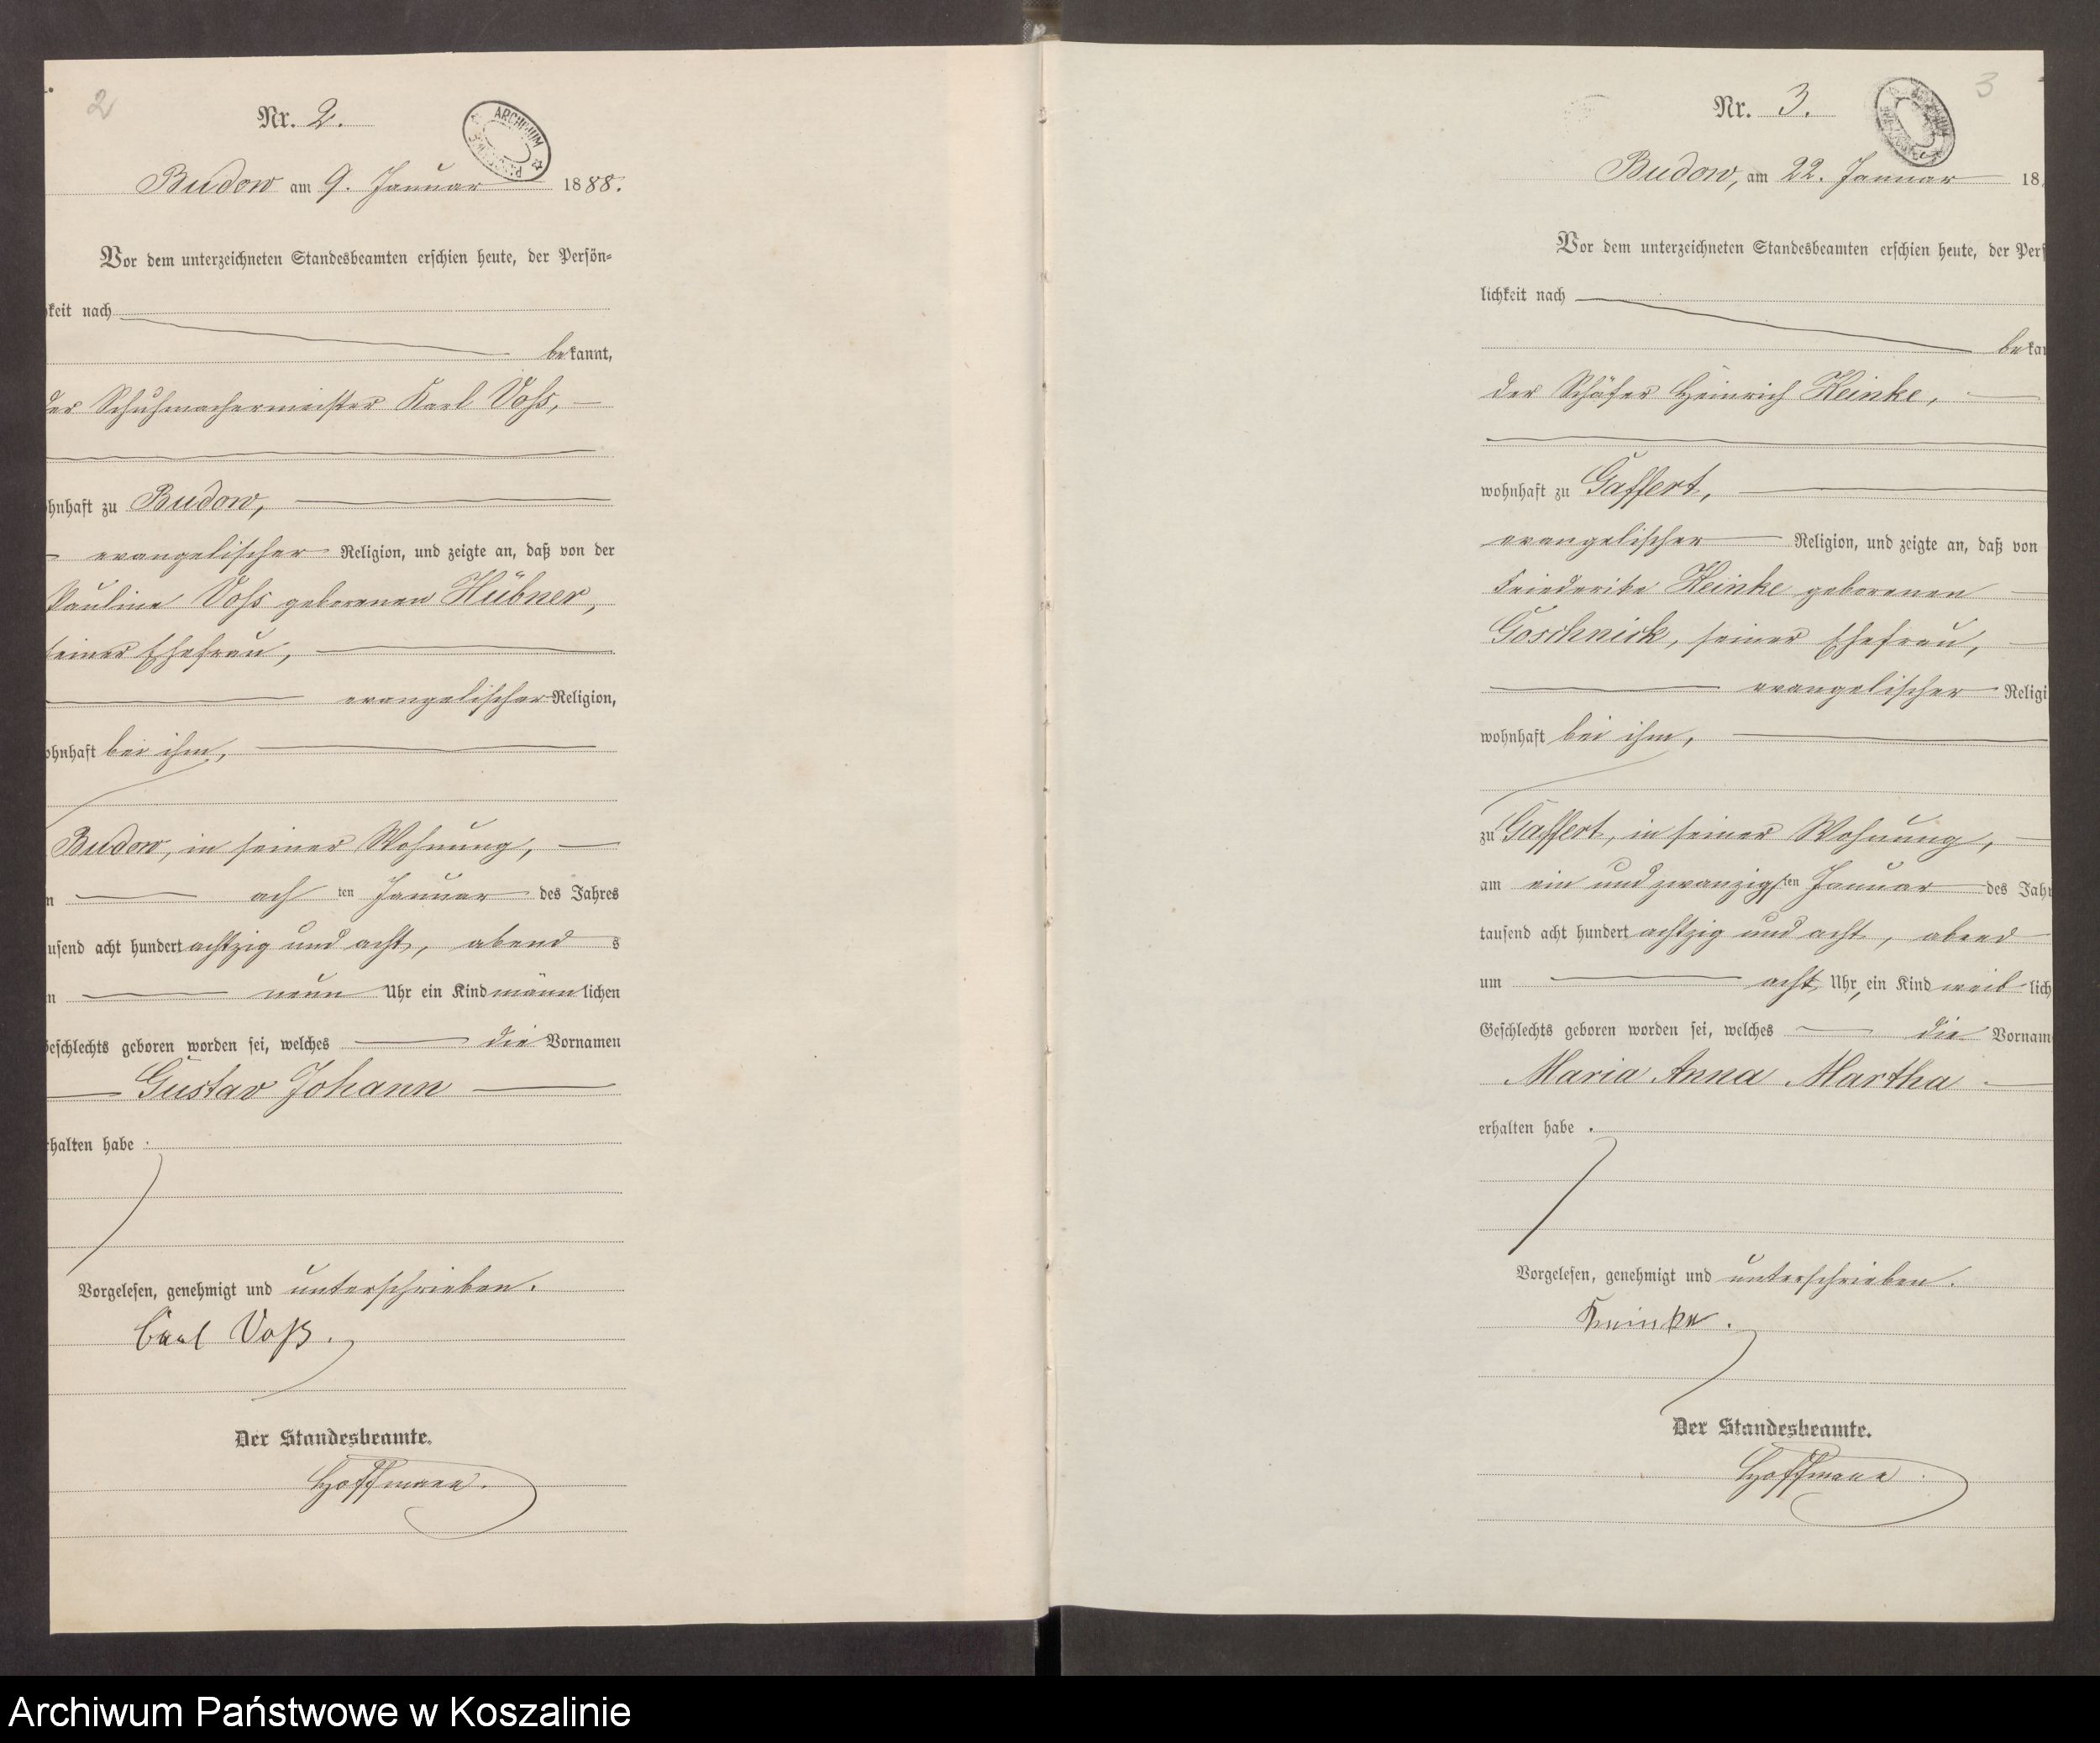 2
Nr. 2.
ARCHIWUM
Budow am 9. Januar 1888.
Vor dem unterzeichneten Standesbeamten erschien heute, der Persön-
keit nach
bekannt,
der Schuhmachermeister Karl Vohs,
hnhaft zu Budow,
evangelischer Religion, und zeigte an, daß von der
Pauline Vohs geborenen Hübner,
seiner Ehefrau,
evangelischer Religion,
ohnhaft bei ihm,
Budow, in seiner Wohnung,
n ach ten Januar des Jahres
usend acht hundert achtzig und acht, abend s
n neun Uhr ein Kind männlichen
eschlechts geboren worden sei, welches die Vornamen
Gustav Johann
halten habe .
Vorgelesen, genehmigt und unterschrieben.
Carl Voß.
Der Standesbeamte.
Hoffmann.
3
Nr. 3.
Budow, am 22. Januar 18
Vor dem unterzeichneten Standesbeamten erschien heute, der Pers
lichkeit nach
bekan
der Schäfer Heinrich Keinke,
wohnhaft zu Gaffert,
evangelischer Religion, und zeigte an, daß von
Friederike Keinke geborenen
Goschnick, seiner Ehefrau,
evangelischer Religi
wohnhaft bei ihm,
zu Gaffert, in seiner Wohnung,
am ein und zwanzigsten Januar des Jahr
tausend acht hundert achtzig und acht, abend
um acht Uhr, ein Kind weib lich
Geschlechts geboren worden sei, welches die Vornam
Maria Anna Martha
erhalten habe .
Vorgelesen, genehmigt und unterschrieben.
Keinke.
Der Standesbeamte.
Hoffmann
Archiwum Państwowe w Koszalinie